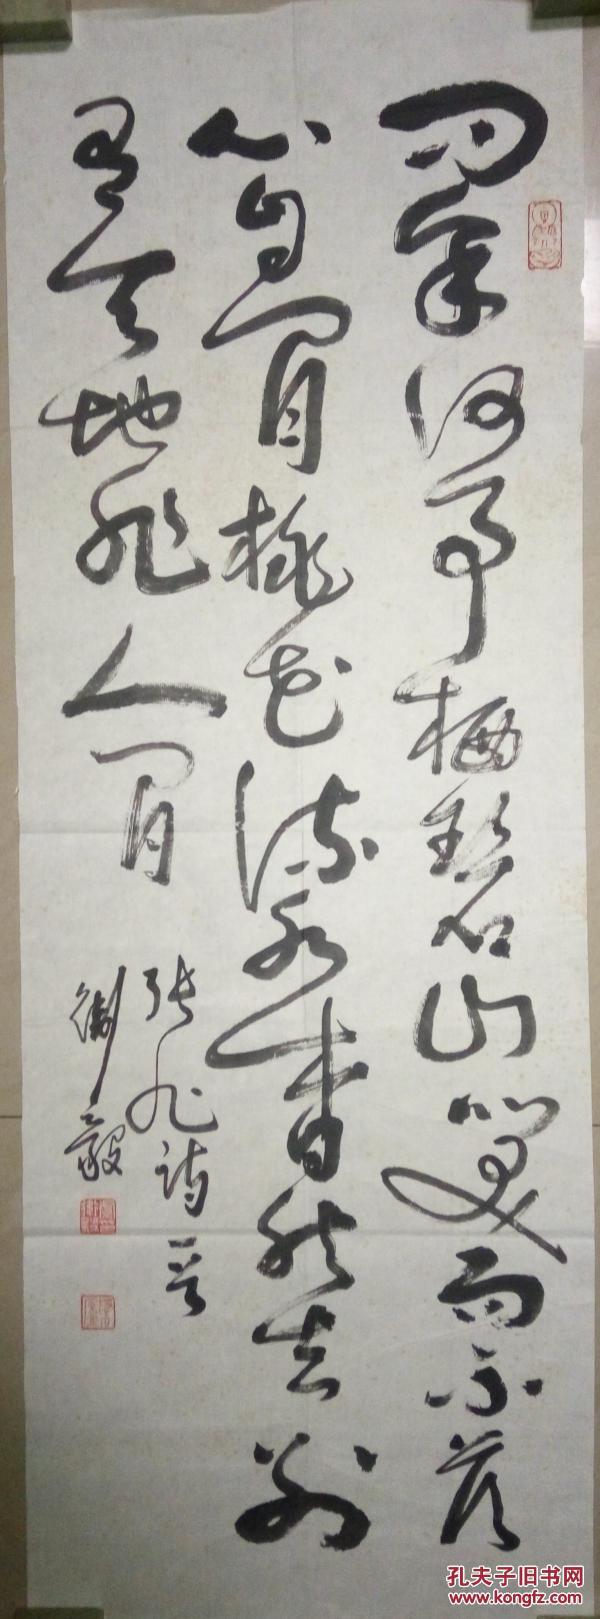 問余何事栖碧山笑而不答
心自間桃花流水杳然去别
有天地非人間
张旭诗一首
衛毅
孔夫子旧书网
www.kongfz.com